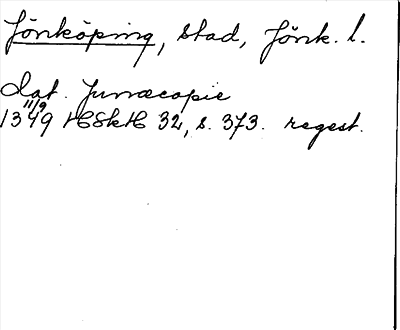 Jönköping, stad, Jönk. l.
Dat. Junæcopie
11/9
1349 HSkH 32, s. 373. regest.